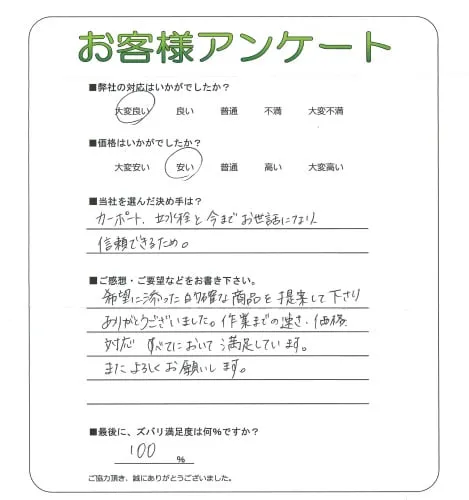 お客様アンケート
■弊社の対応はいかがでしたか？
大変良い 良い 普通 不満 大変不満
■価格はいかがでしたか？
大変安い 安い 普通 高い 大変高い
■当社を選んだ決め手は？
カーポート、効水栓と今までお世話になり
信頼できるため。
■ご感想・ご要望などをお書き下さい。
希望に添った的確な商品を提案して下さり
ありがとうございました。作業までの速さ、価格、
対応 すべてにおいて満足しています。
またよろしくお願いします。
■最後に、ズバリ満足度は何％ですか？
100 ％
ご協力頂き、誠にありがとうございました。